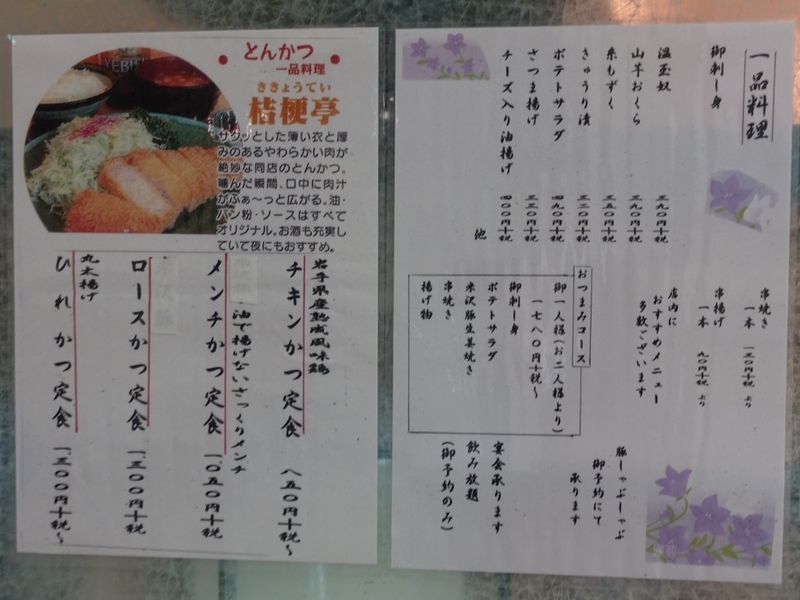 とんかつ
一品料理
ききょうてい
桔梗亭
サクッとした薄い衣と厚
みのあるやわらかい肉が
絶妙な同店のとんかつ。
噛んだ瞬間、口中に肉汁
がふぁ〜っと広がる。油・
パン粉・ソースはすべて
オリジナル。お酒も充実し
ていて夜にもおすすめ。
岩手県産熟成風味鶏
チキンかつ定食 八五〇円+税〜
油で揚げないさっくりメンチ
メンチかつ定食 一、〇五〇円+税
ロースかつ定食 一、三〇〇円+税
丸太揚げ
ひれかつ定食 一、三〇〇円+税〜
一品料理
御刺し身
温玉奴 三九〇円+税
山芋おくら 三九〇円+税
糸もずく 三五〇円+税
きゅうり漬 三二〇円+税
ポテトサラダ 四九〇円+税
さつま揚げ 三三〇円+税
チーズ入り油揚げ 四〇〇円+税
他
串焼き
一本 一三〇円+税 より
串揚げ
一本 九〇円+税 より
店内に
おすすめメニュー
多数ございます
おつまみコース
御一人様(お二人様より)
一七八〇円+税〜
御刺し身
ポテトサラダ
米沢豚生姜焼き
串焼き
揚げ物
豚しゃぶしゃぶ
御予約にて
承ります
宴会承ります
飲み放題
(御予約のみ)